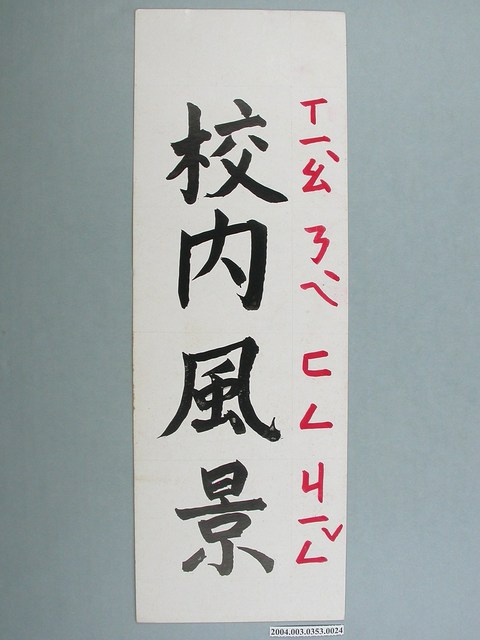 校內風景
ㄒㄧㄠˋ ㄋㄟˋ ㄈㄥ ㄐㄧㄥˇ
2004.003.0353.0024